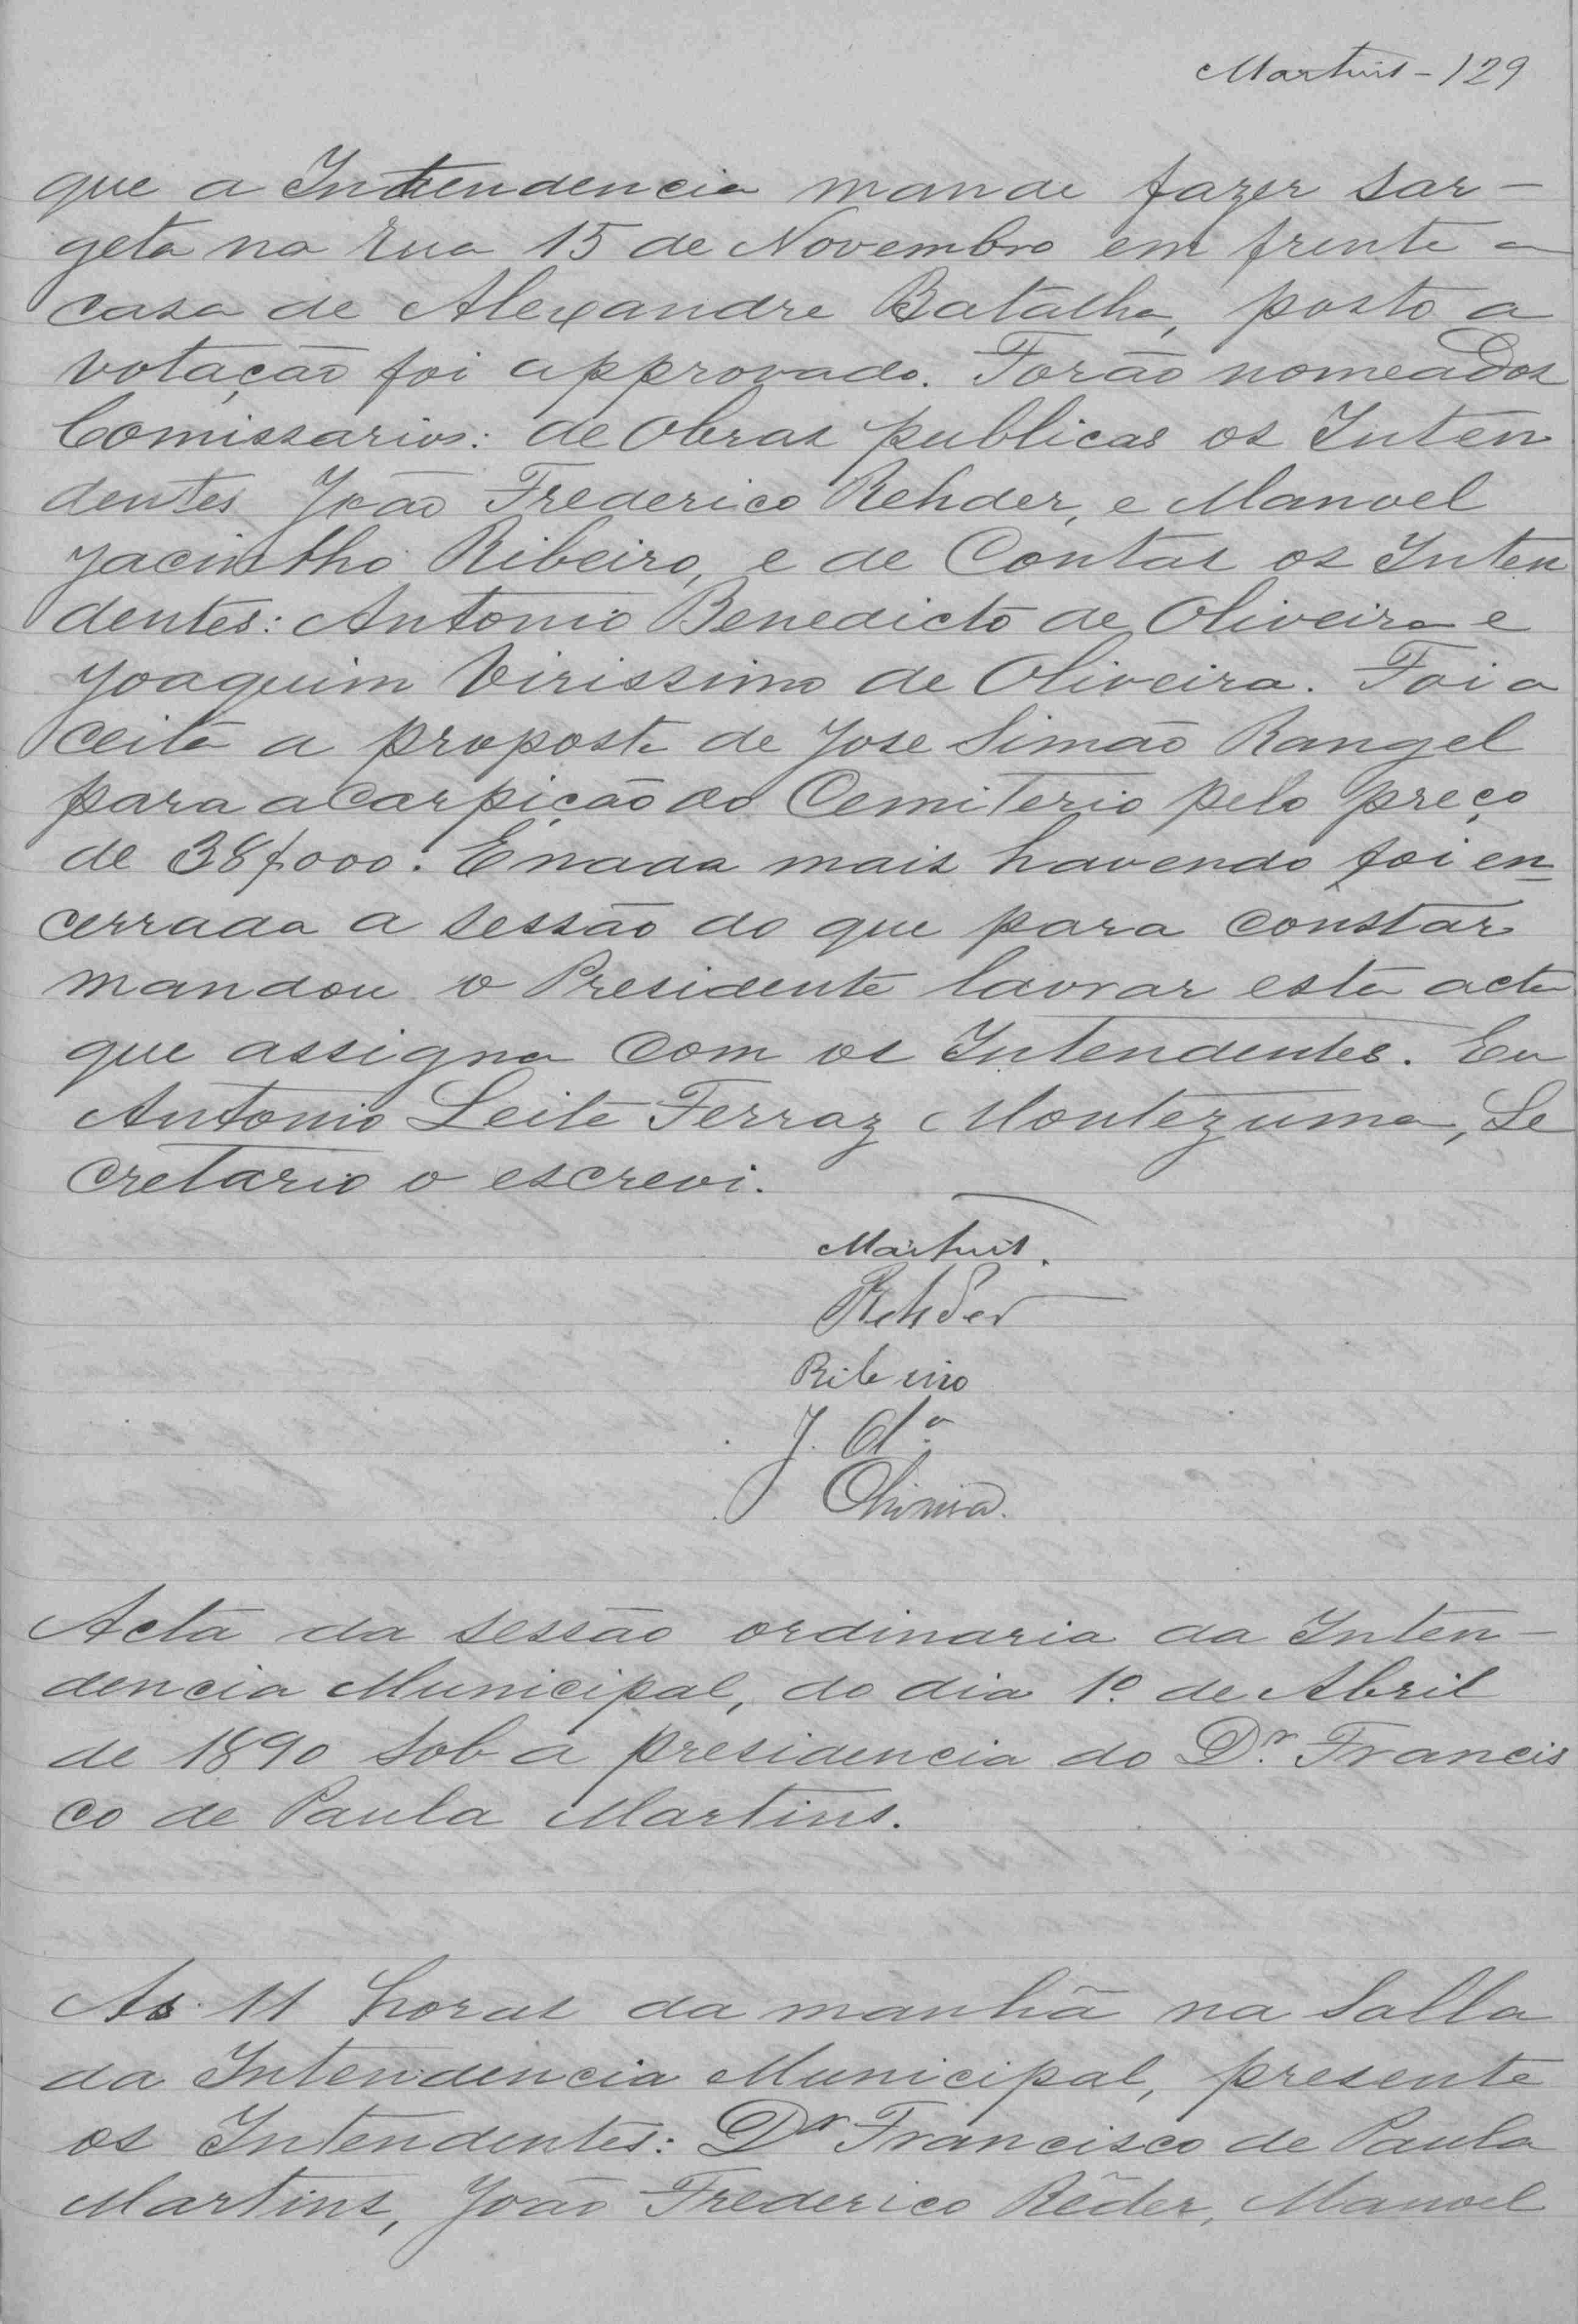 Martins - 129
que a Intendencia mande fazer sar-
geta na rua 15 de Novembro em frente a
casa de Alexandre Batalha, posto a
votação foi approvado. Forão nomeados
Comissarios: de Obras publicas os Inten
dentes João Frederico Rehder, e Manoel
Jacintho Ribeiro, e de Contas os Inten
dentes: Antonio Benedicto de Oliveira e
Joaquim Virissimo de Oliveira. Foi a
ceita a proposta de Jose Simão Rangel
para a Carpição do Cemiterio pelo preço
de 38$000. E nada mais havendo foi en=
cerrada a sessão do que para constar
mandou o Presidente lavrar esta acta
que assigna com os Intendentes. Eu
Antonio Leite Ferraz Montezuma, Se
cretario o escrevi.
Martins.
Rehder
Ribeiro
J. Olª
Oliveira.
Acta da sessão ordinaria da Inten-
dencia Municipal, do dia 1º de Abril
de 1890 sob a presidencia do Dr. Francis
co de Paula Martins.
As 11 horas da manhã na Salla
da Intendencia Municipal, presente
os Intendentes: Dr Francisco de Paula
Martins, João Frederico Rêder, Manoel